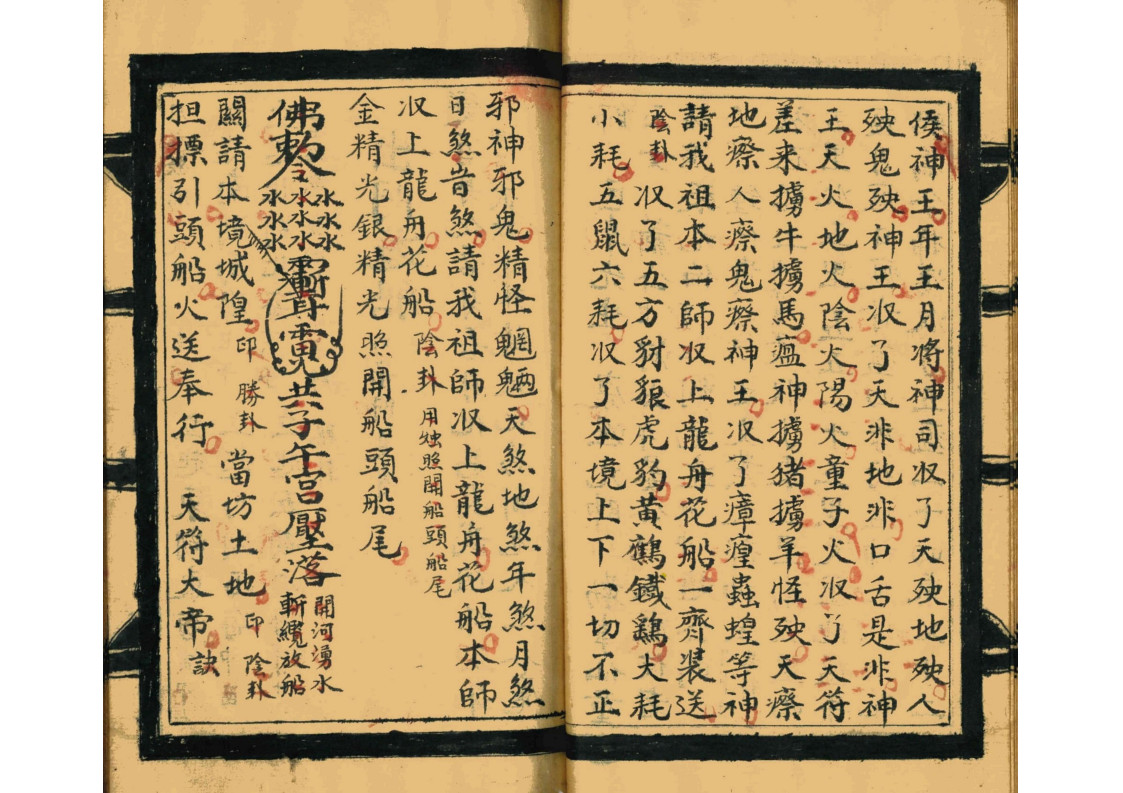 侯神王年王月将神司収了天殃地殃人
殃鬼殃神王収了天非地非口舌是非神
王天火地火陰火陽火童子火収了天符
差来擄牛擄馬瘟神擄猪擄羊怪殃天瘵
地瘵人瘵鬼瘵神王収了瘴瘟蟲蝗等神
請我祖本二師収上龍舟花船一齊装送
陰卦 収了五方豺狼虎豹黃鶴鐵鷄大耗
小耗五鼠六耗収了本境上下一切不正
邪神邪鬼精怪魍魎天煞地煞年煞月煞
日煞昔煞請我祖師収上龍舟花船本師
収上龍舟花船 陰卦 用燭照開船頭船尾
金精光銀精光照開船頭船尾
佛敕令 水水水水水水水水 共子午宮壓落 開河湧水 斬纜放船
關請本境城隍 印 勝卦 當坊土地 印 陰卦
担標引頭船火送奉行 天符大帝 訣